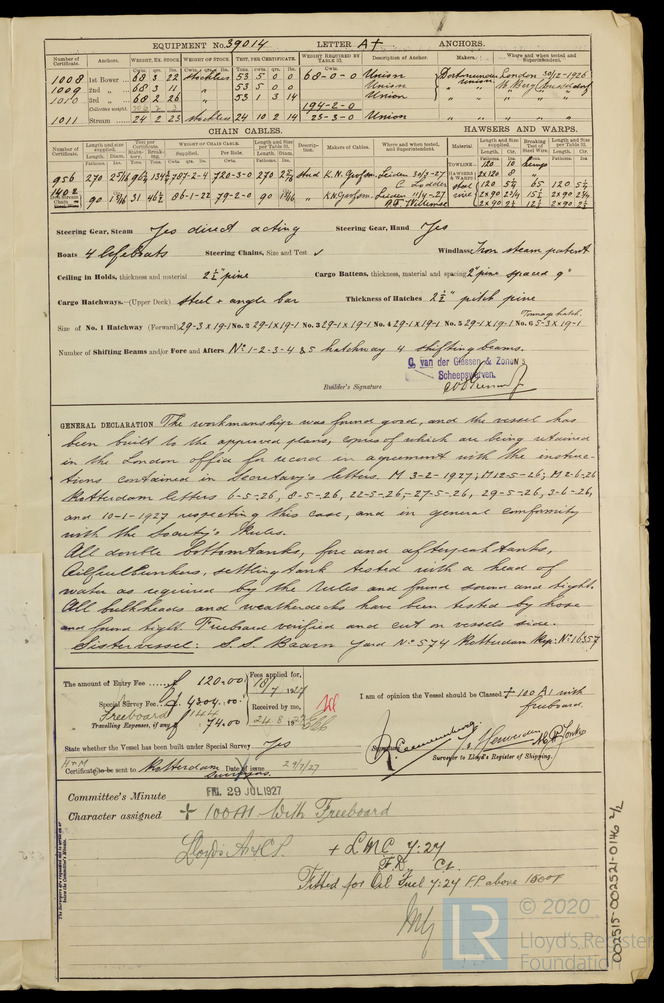 EQUIPMENT No. 39014 LETTER A+ ANCHORS.
Number of Certificate. Anchors. WEIGHT, EX. STOCK. WEIGHT OF STOCK. TEST, PER CERTIFICATE. WEIGHT REQUIRED BY TABLE 33. Description of Anchor. Makers. Where and when tested and Superintendent.
1008 1st Bower 68 3 22 stockless 53 5 0 0 68-0-0 Union Dortmunder Union London 30/12-1926
1009 2nd " 68 3 11 " 53 5 0 0 Union
1010 3rd " 68 2 26 " 53 1 3 14 Union
Collective weight 194-2-0
1011 Stream 24 2 23 stockless 24 10 2 14 23-3-0 Union
CHAIN CABLES. HAWSERS AND WARPS.
Number of Certificate. Length and size supplied. Test per Certificate. WEIGHT OF CHAIN CABLE. Length and size per Table 33. Description. Makers. Where and when tested, and Superintendent. Material Length and Size supplied. Breaking Test of Steel Wire. Length and Size per Table 33.
TOWLINE 120 10 hemp
956 270 787-2-4 720-3-0 270 Stud Leiden 30/3-27 HAWSERS & WARPS 2x120 8 "
1402 90 31 46½ 86-1-22 79-2-0 90 " Leiden 11/4-27
Steering Gear, Steam Yes direct acting Steering Gear, Hand Yes
Boats 4 lifeboats Steering Chains, Size and Test ✓ Windlass Iron steam patent
Ceiling in Holds, thickness and material 2½" pine Cargo Battens, thickness, material and spacing 2" pine spaced 9"
Cargo Hatchways.—(Upper Deck) steel + angle bar Thickness of Hatches 2½" pitch pine
Tonnage hatch.
Size of No. 1 Hatchway (Forward) 29-3 x 19-1 No. 2 29-1 x 19-1 No. 3 29-1 x 19-1 No. 4 29-1 x 19-1 No. 5 29-1 x 19-1 No. 6 5-3 x 19-1
Number of Shifting Beams and/or Fore and Afters No 1-2-3-4 & 5 hatchway 4 shifting beams.
C. van der Giessen & Zonen's
Scheepswerven.
Builder's Signature
GENERAL DECLARATION The workmanship was found good, and the vessel has
been built to the approved plans, copies of which are being retained
in the London office for record in agreement with the instruc-
tions contained in Secretary's letters. M 3-2-1927; M 12-5-26; M 2-6-26
Rotterdam letters 6-5-26, 8-5-26, 22-5-26, 27-5-26, 29-5-26, 3-6-26,
and 10-1-1927 respecting this case, and in general conformity
with the Society's Rules.
All double bottomtanks, fore and afterpeaktanks,
Oilfuelbunkers, settling tank tested with a head of
water as required by the Rules and found sound and tight.
All bulkheads and weatherdecks have been tested by hose
and found tight. Freeboard verified and cut on vessels side.
Sistervessel: S.S. Baarn Yard No 574 Rotterdam Rep: No 16357
The amount of Entry Fee ...... £ 120.00 Fees applied for,
18/7 1927
Special Survey Fee... £ 4304.00
Freeboard 144 Received by me,
Travelling Expenses, if any £ 74.00 24.8 1927
I am of opinion the Vessel should be Classed + 100 A1 with
freeboard.
State whether the Vessel has been built under Special Survey Yes
Surveyor to Lloyd's Register of Shipping.
Certificate to be sent to Rotterdam Surveyors. Date of issue 29/7/27
Committee's Minute FRI. 29 JUL 1927
Character assigned + 100A1 With Freeboard
Lloyds A & CP. + LMC 7.27
F.D. Cl.
Fitted for Oil Fuel 7.27 F.P. above 150°F
The Surveyors are requested not to write on or below the Committee's Minute.
002515-002521-0146 2/2
LR
© 2020
Lloyd's Register
Foundation